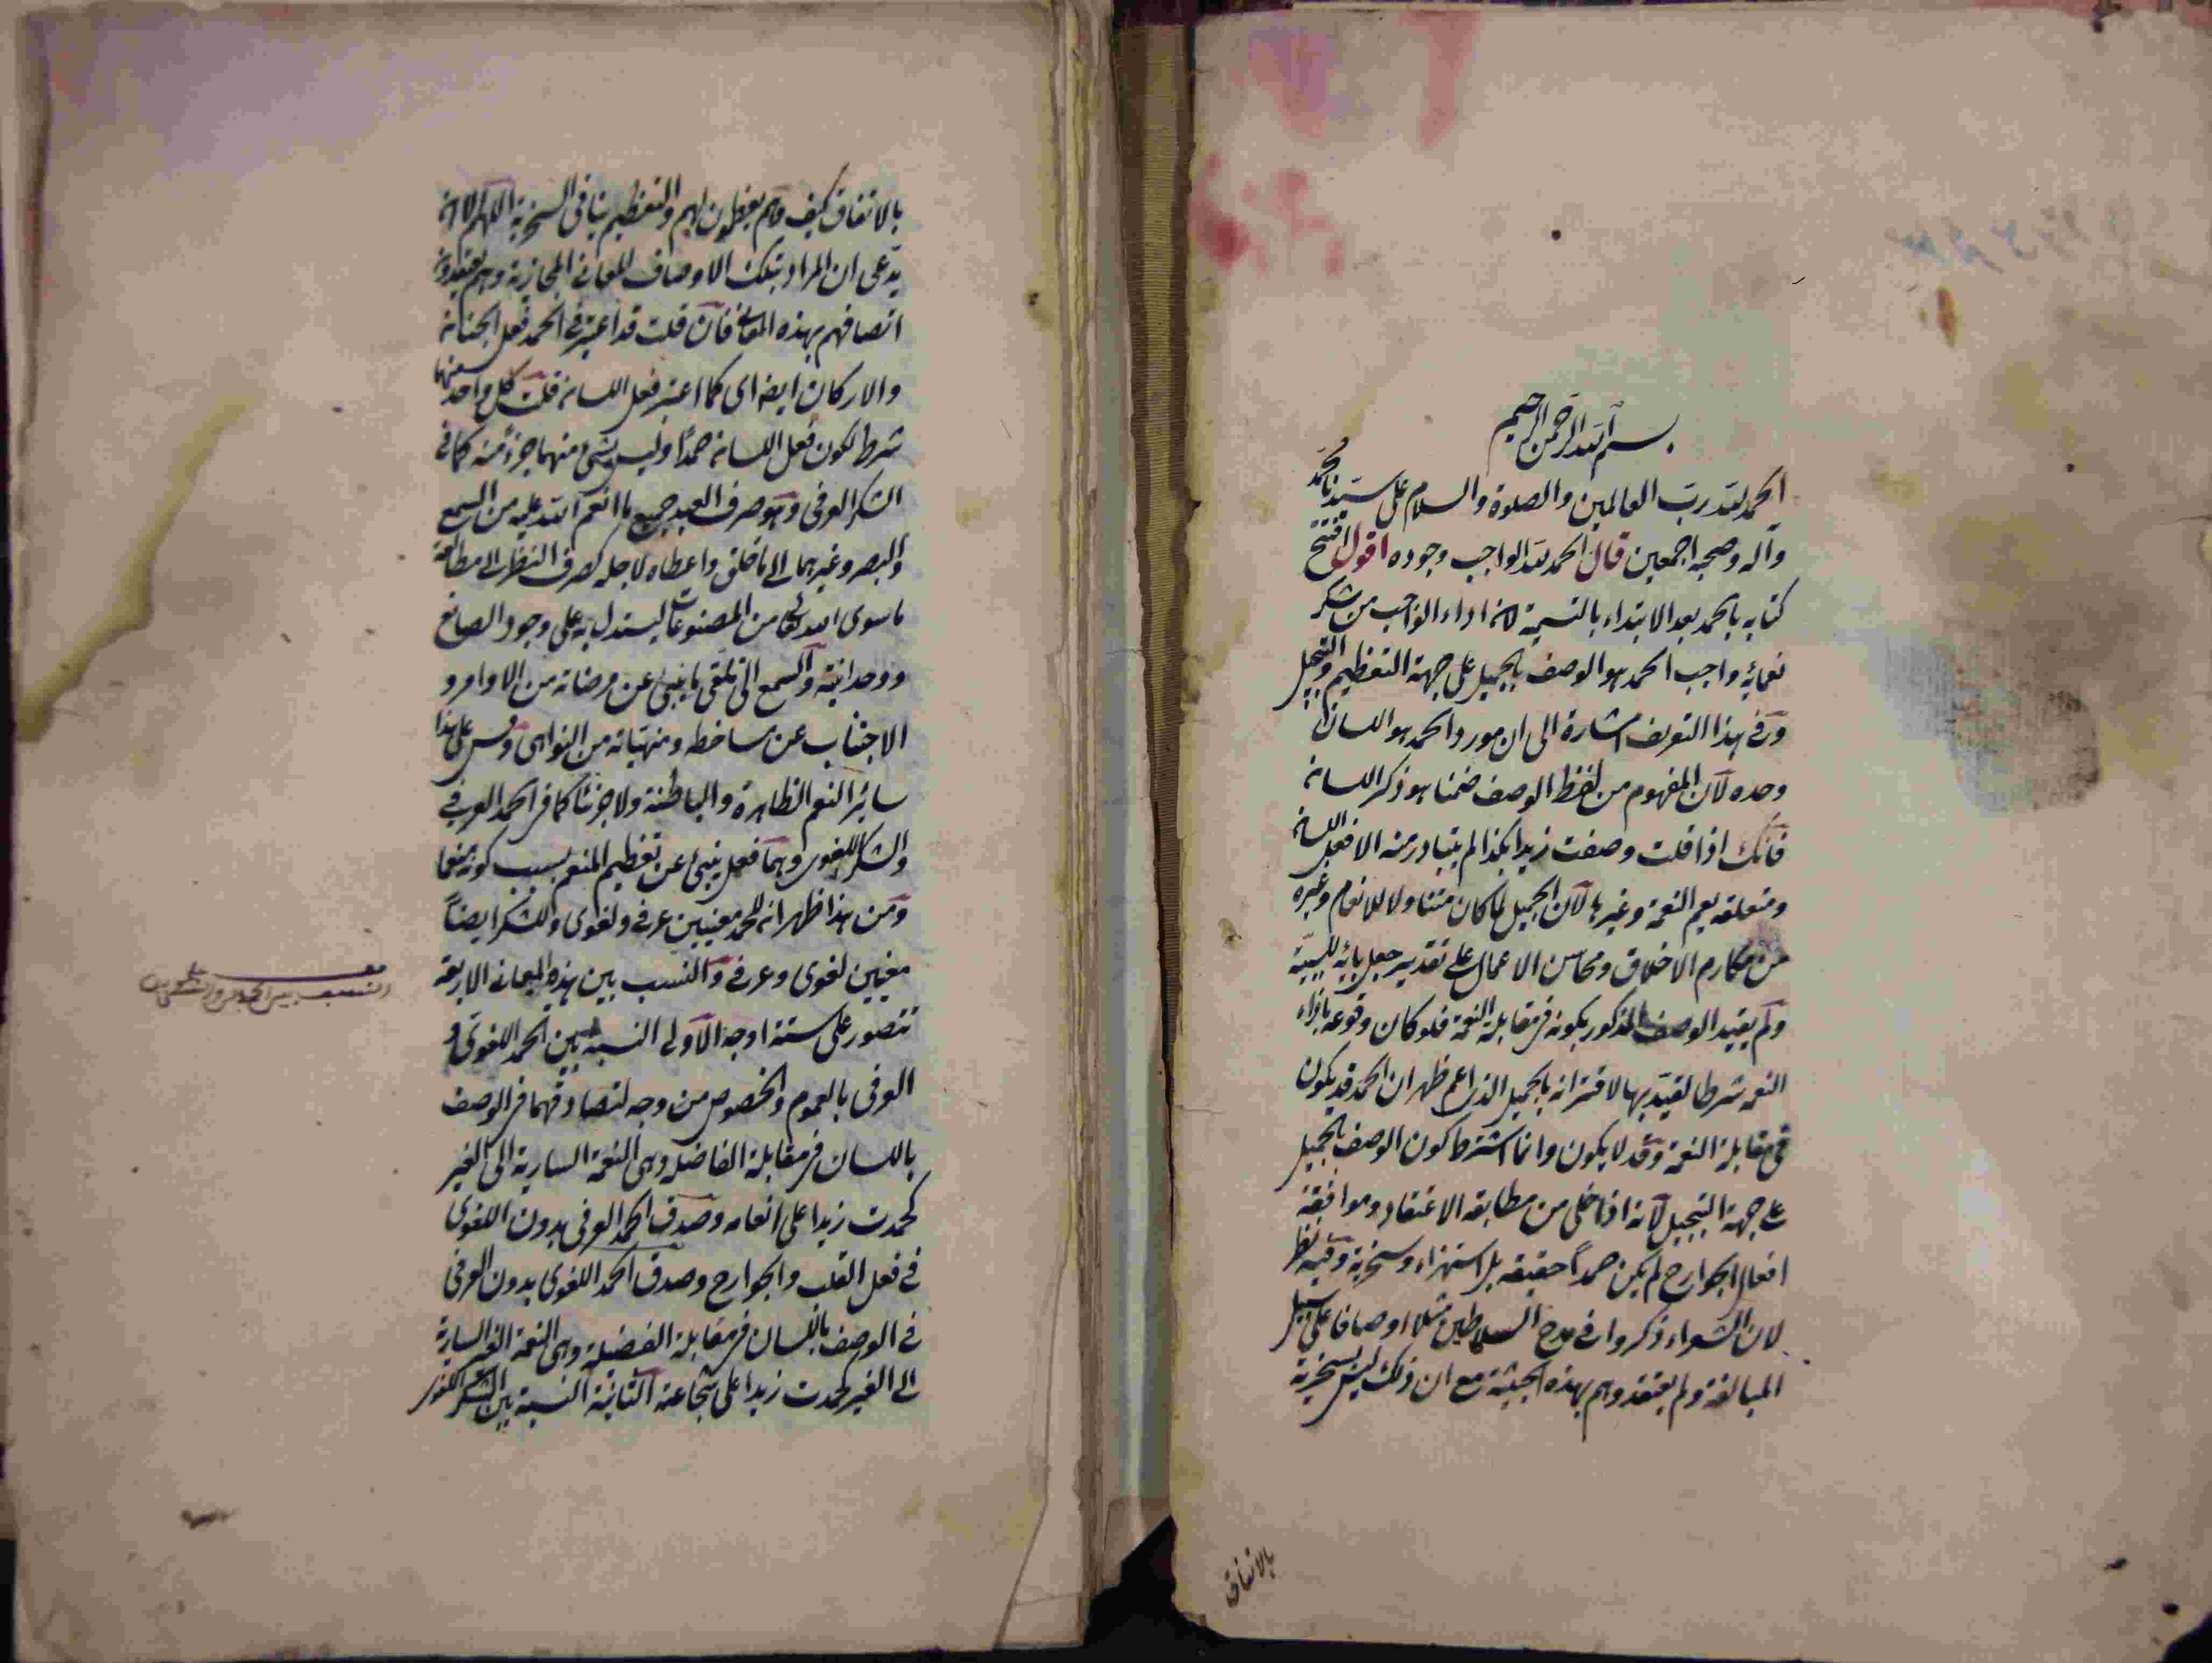 بسم الله الرحمن الرحيم
الحمد لله رب العالمين والصلوة والسلام على سيدنا محمد
وآله وصحبه اجمعين قال الحمد لله الواجب وجوده اقول افتتح
كتابه بالحمد بعد الابتداء بالتسمية لانه اداء الواجب من شكر
نعمائه واجب الحمد هو الوصف بالجميل على جهة التعظيم والتبجيل
وفى هذا التعريف اشارة الى ان مورد الحمد هو اللسان
وحده لان المفهوم من لفظ الوصف ضمنا هو ذكر اللسان
فانك اذا قلت وصفت زيدا بكذا لم يتبادر منه الا فعل اللسان
ومتعلقه يعم النعمة وغيرها لان الجميل لما كان متناولا للانعام وغيره
من مكارم الاخلاق ومحاسن الاعمال على تقدير جعل بائه للسببية
ولم يقيد الوصف المذكور بكونه فى مقابلة النعمة فلو كان وقوعه بازاء
النعمة شرطا لقيد بها لاقترانه بالجميل الذى اعم ظهر ان الحمد قد يكون
فى مقابلة النعمة وقد لا يكون وانما اشترط كون الوصف بالجميل
على جهة التبجيل لانه اذا خلى من مطابقة الاعتقاد وموافقة
افعال الجوارح لم يكن حمدا حقيقة بل استهزاء وسخرية وفيه نظر
لان الشعراء ذكروا فى مدح السلاطين مثلا اوصافا على سبيل
المبالغة ولم يعتقدوهم بهذه الحيثية مع ان ذلك ليس بسخرية
بالاتفاق
بالاتفاق كيف وهم يعظمون لهم والتعظيم ينافى السخرية اللهم الا انه
يدعى ان المراد بتلك الاوصاف المعانى المجازية وهم يعتقدون
اتصافهم بهذه المعانى فان قلت قد اعتبر فى الحمد فعل الجنان
والاركان ايضا اى كما اعتبر فعل اللسان قلت كل واحد منهما
شرط لكون فعل اللسان حمدا وليس شئ منهما جزء منه كما فى
الشكر العرفى وهو صرف العبد جميع ما انعم الله عليه من السمع
والبصر وغيرهما الى ما خلق واعطاه لاجله كصرف النظر الى مطالعة
ما سوى الله تعالى من المصنوعات ليستدل به على وجود الصانع
ووحدانيته والسمع الى تلقى ما ينبئ عن مرضاته من الاوامر و
الاجتناب عن مساخطه ومنهياته من النواهى وقس على هذا
سائر النعم الظاهرة والباطنة ولا جزئيا كما فى الحمد العرفى
والشكر اللغوى وهما فعل ينبئ عن تعظيم المنعم بسبب كونه منعما
ومن هذا ظهر انه للحمد معنيين عرفى ولغوى وللشكر ايضا
معنيين لغوى وعرفى والنسب بين هذه المعانى الاربعة
تتصور على ستة اوجه الاولى النسبة بين الحمد اللغوى و
العرفى بالعموم والخصوص من وجه لتصادقهما فى الوصف
باللسان فى مقابلة الفاضلة وهى النعمة السارية الى الغير
كحمدت زيدا على انعامه وصدق الحمد العرفى بدون اللغوى
فى فعل القلب والجوارح وصدق الحمد اللغوى بدون العرفى
فى الوصف باللسان فى مقابلة الفضيلة وهى النعمة الغير السارية
الى الغير كحمدت زيدا على شجاعته الثانية النسبة بين الشكر اللغوى